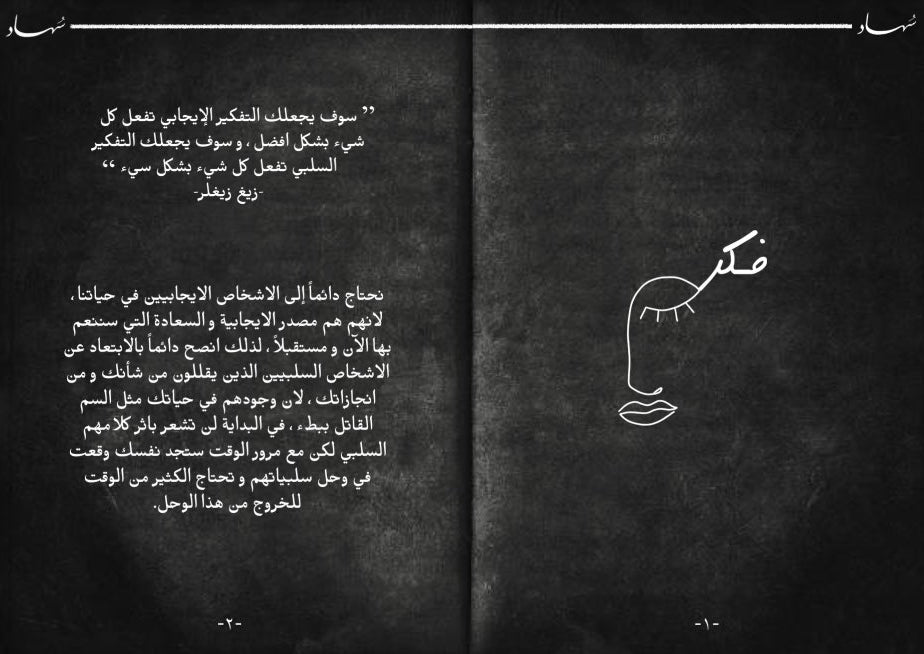 سُهاد
سُهاد
فكر
-١-
” سوف يجعلك التفكير الإيجابي تفعل كل
شيء بشكل افضل ، و سوف يجعلك التفكير
السلبي تفعل كل شيء بشكل سيء “
-زيغ زيغلر-
نحتاج دائماً إلى الاشخاص الايجابيين في حياتنا ،
لانهم هم مصدر الايجابية و السعادة التي سننعم
بها الآن و مستقبلاً ، لذلك انصح دائماً بالابتعاد عن
الاشخاص السلبيين الذين يقللون من شأنك و من
انجازاتك ، لان وجودهم في حياتك مثل السم
القاتل ببطء ، في البداية لن تشعر باثر كلامهم
السلبي لكن مع مرور الوقت ستجد نفسك وقعت
في وحل سلبياتهم و تحتاج الكثير من الوقت
للخروج من هذا الوحل.
-٢-